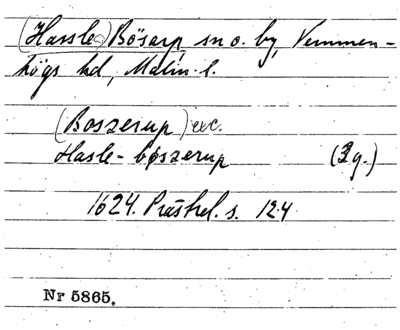 (Hassle) Bösarp sn o. by, Vemmen-
högs hd, Malm. l.
(Boszerup) etc.
Hasle-bøszerup (2 g.)
1624. Prästrel. s. 124
Nr 5865.